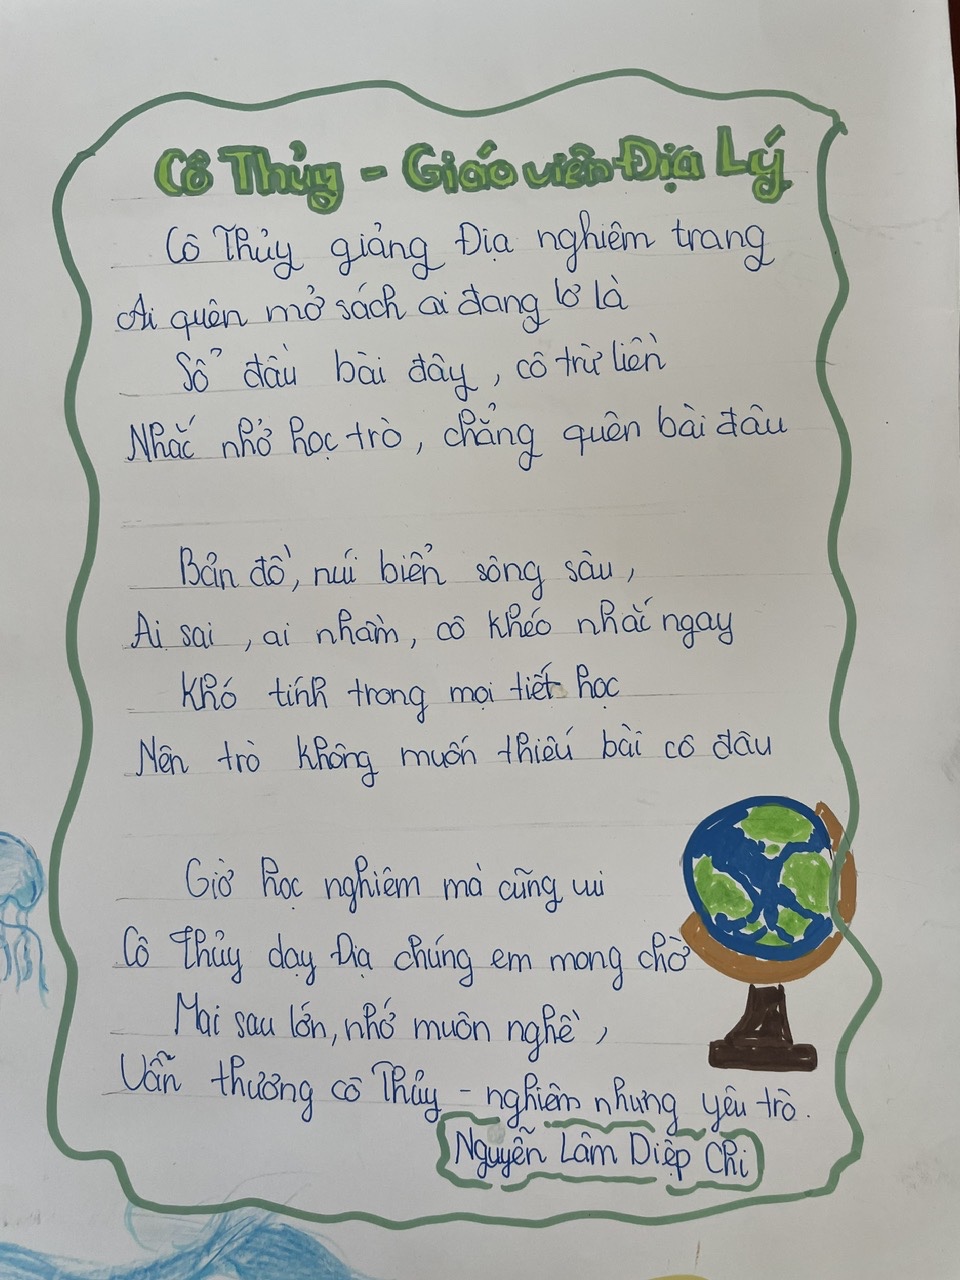 Cô Thủy - Giáo viên Địa Lý
Cô Thủy giảng Địa nghiêm trang
Ai quên mở sách ai đang lơ là
Sổ đầu bài đây, cô trừ liền
Nhắc nhở học trò, chẳng quên bài đâu
Bản đồ, núi biển sông sâu,
Ai sai, ai nhầm, cô khéo nhắc ngay
Khó tính trong mọi tiết học
Nên trò không muốn thiếu bài cô đâu
Giờ học nghiêm mà cũng vui
Cô Thủy dạy Địa chúng em mong chờ
Mai sau lớn, nhớ muôn nghề,
Vẫn thương cô Thủy - nghiêm nhưng yêu trò.
Nguyễn Lâm Diệp Chi